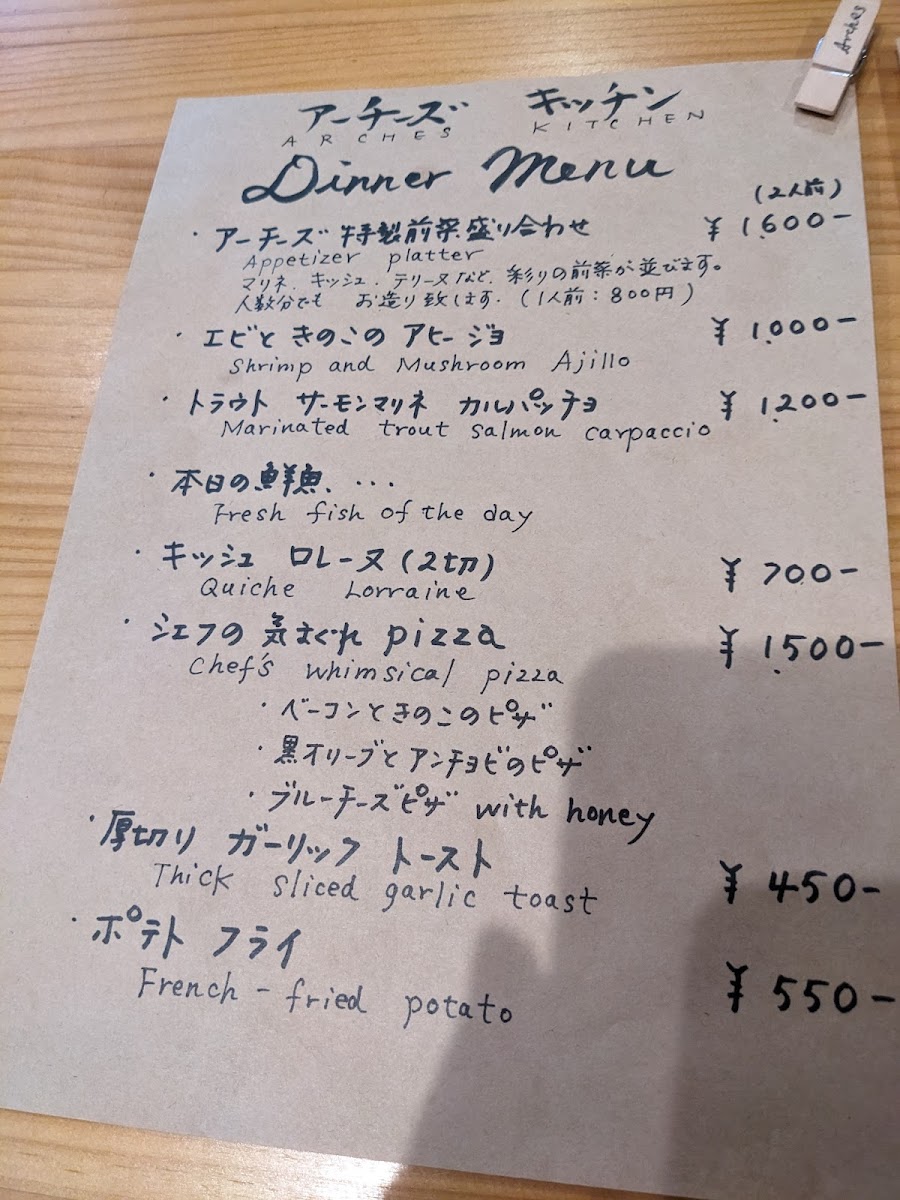 Arches
アーチーズ キッチン
ARCHES KITCHEN
Dinner Menu
(2人前)
・アーチーズ 特製前菜盛り合わせ ¥1,600-
Appetizer platter
マリネ、キッシュ、テリーヌなど、彩りの前菜が並びます。
人数分でも お造り致します。(1人前:800円)
・エビときのこの アヒージョ ¥1,000-
Shrimp and Mushroom Ajillo
・トラウト サーモンマリネ カルパッチョ ¥1,200-
Marinated trout salmon carpaccio
・本日の鮮魚、・・・
Fresh fish of the day
・キッシュ ロレーヌ(2切) ¥700-
Quiche Lorraine
・シェフの 気まぐれ pizza ¥1,500-
Chef's whimsical pizza
・ベーコンときのこのピザ
・黒オリーブとアンチョビのピザ
・ブルーチーズピザ with honey
・厚切り ガーリック トースト ¥450-
Thick sliced garlic toast
・ポテト フライ ¥550-
French-fried potato